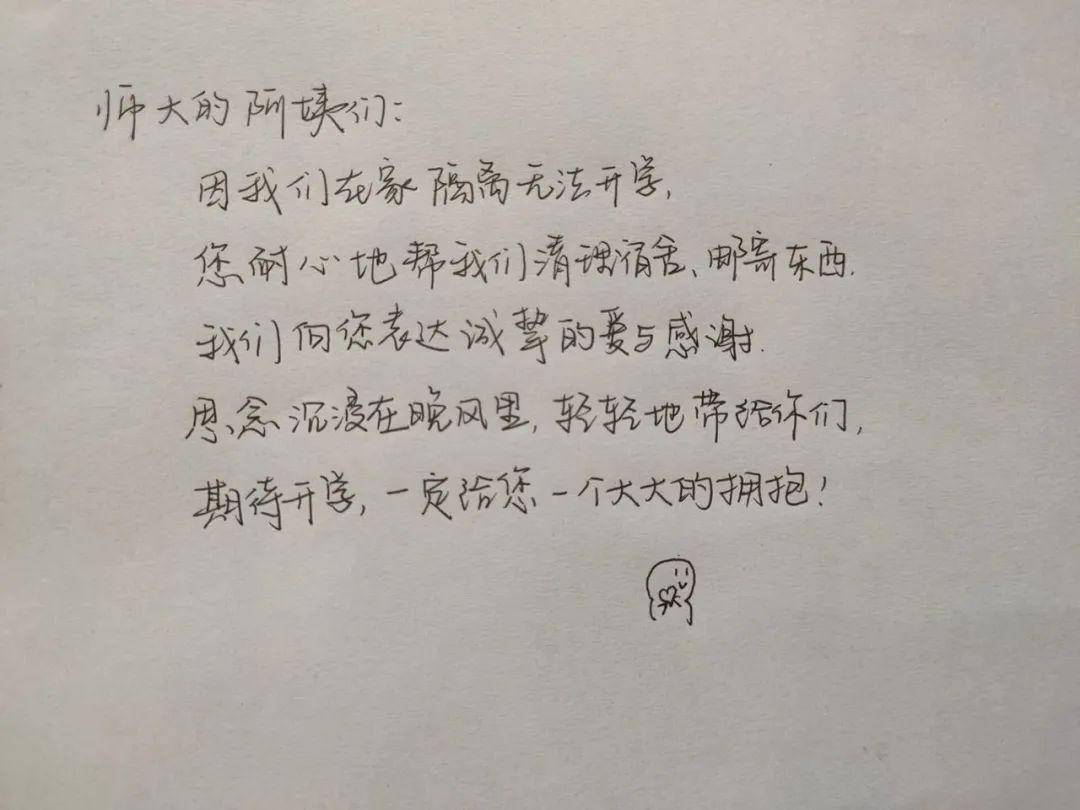 师大的阿姨们：
因我们在家隔离无法开学，
您耐心地帮我们清理宿舍、邮寄东西．
我们向您表达诚挚的爱与感谢．
思念沉浸在晚风里，轻轻地带给你们，
期待开学，一定给您一个大大的拥抱！